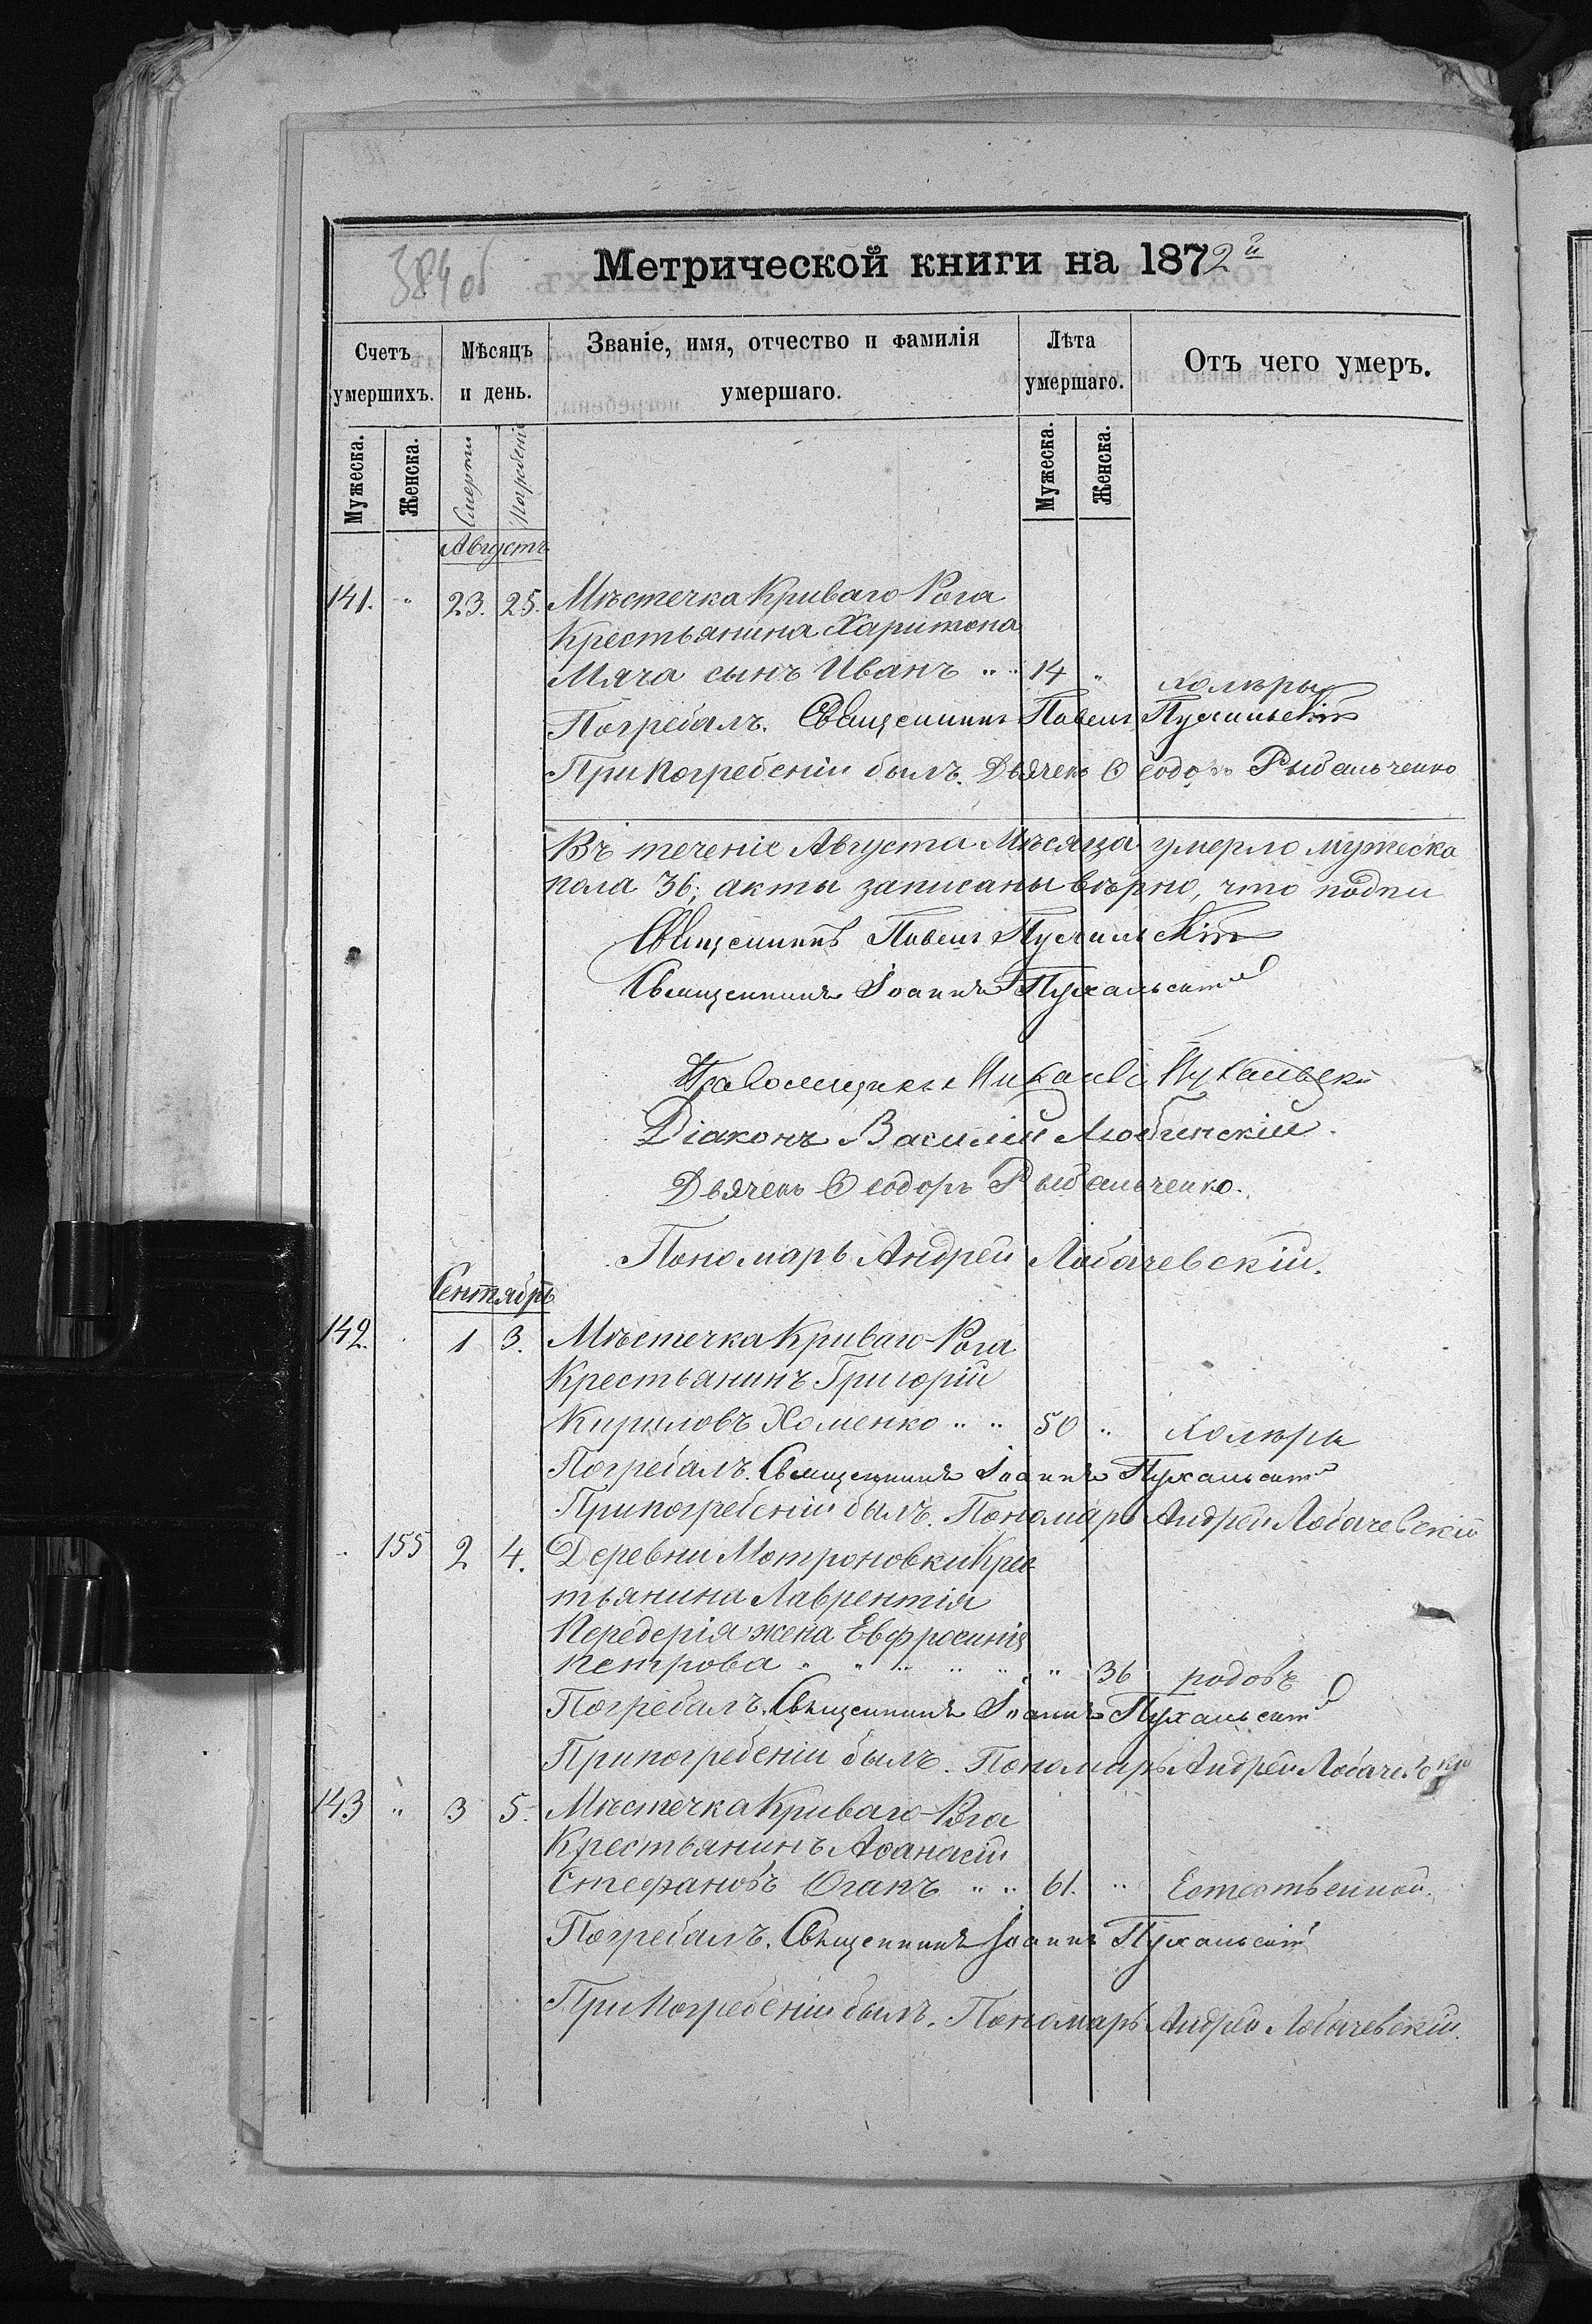 384 об
Метрической книги на 1872й
Счетъ умершихъ.
Мѣсяцъ и день.
Званіе, имя, отчество и фамилія умершаго.
Лѣта умершаго.
Отъ чего умеръ.
Мужеска. Женска. Смерти Погребенія Мужеска. Женска.
Августъ
141. " 23. 25. Мѣстечка Криваго-Рога
Крестьянина Харитона
Мяча сынъ Иванъ " " 14 " холѣры
Погребалъ. Священникъ Павелъ Пухальскій
При погребеніи былъ. Дьячекъ Ѳеодоръ Рыбальченко
Въ теченіе Августа Мѣсяца умерло мужеска
пола 36; акты записаны вѣрно, что подпи
Священникъ Павелъ Пухальскій
Священникъ Іоаннъ Пухальскій
Пухальскій
Діаконъ Василій Любинскій.
Дьячекъ Ѳеодоръ Рыбальченко.
Пономарь Андрей Лобачевскій.
Сентябрь
142. . 1 3. Мѣстечка Криваго-Рога
Крестьянинъ Григорій
Кириловъ Хоменко " " 50 " Холѣры
Погребалъ. Священникъ Іоаннъ Пухальскій
При погребеніи былъ. Пономарь Андрей Лобачевскій
" 155 2 4. Деревни Мотроновки Крес
тьянина Лаврентія
Передерія жена Евфросинія
Петрова " " " " " " 36 родовъ
Погребалъ. Священникъ Іоаннъ Пухальскій
При погребеніи былъ. Пономарь Андрей Лобачевскій
143 " 3 5. Мѣстечка Криваго-Рога
Крестьянинъ Аѳанасій
Стефановъ Оганъ " " 61. " Естественной.
Погребалъ. Священникъ Іоаннъ Пухальскій
При погребеніи былъ. Пономарь Андрей Лобачевскій.